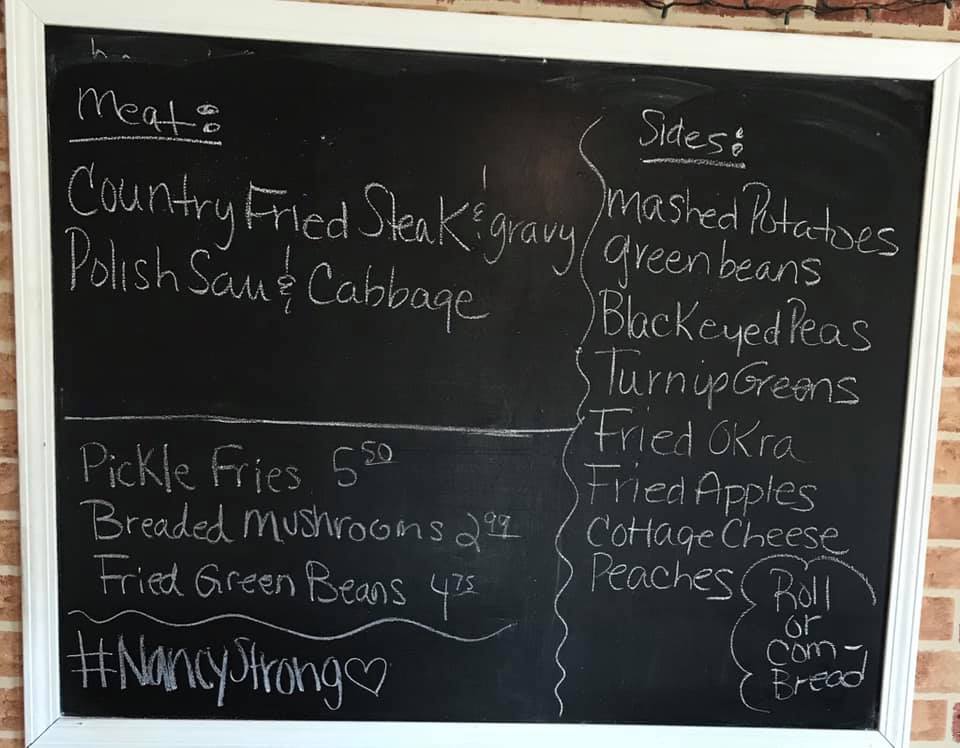 Meat:
Country Fried Steak & gravy
Polish Sau & Cabbage
Pickle Fries 5 50
Breaded Mushrooms 2 99
Fried Green Beans 4 75
#NancyStrong♡
Sides:
mashed Potatoes
green beans
Black eyed Peas
Turnip Greens
Fried Okra
Fried Apples
Cottage Cheese
Peaches
Roll
or
corn-
Bread